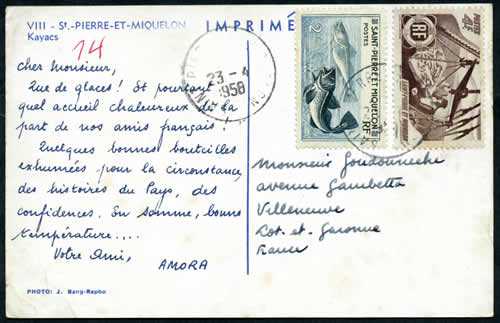 VIII - St.-PIERRE-ET-MIQUELON
Kayacs
IMPRIMÉ
14
Cher Monsieur,
Que de glaces! Et pourtant
quel accueil chaleureux de la
part de nos amis français!
Quelques bonnes bouteilles
exhumées pour la circonstance,
des histoires du Pays, des
confidences. En somme, bonne
température....
Votre Ami,
AMORA
PHOTO: J. Bang-Rapho
23 - 4
1958
2F
SAINT-PIERRE ET MIQUELON
POSTES
RF
RF
Monsieur Goudouneche
avenue Gambetta
Villeneuve
Lot-et-Garonne
France